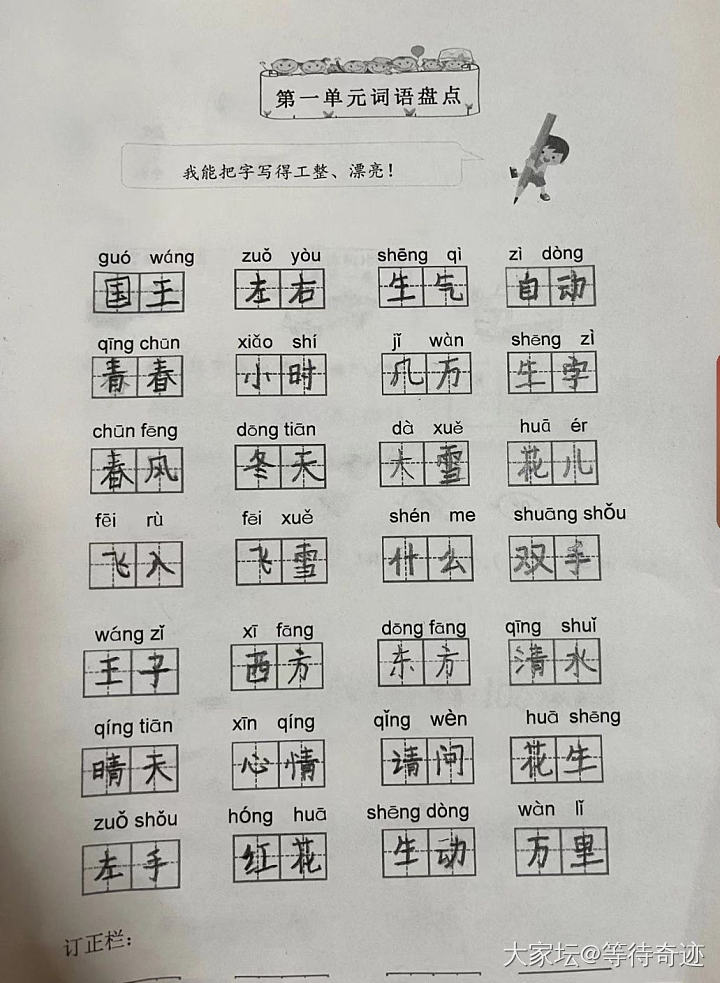 第一单元词语盘点
我能把字写得工整、漂亮！
guó wáng zuǒ yòu shēng qì zì dòng
国王 左右 生气 自动
qīng chūn xiǎo shí jǐ wàn shēng zì
青春 小时 几万 生字
chūn fēng dōng tiān dà xuě huā ér
春风 冬天 大雪 花儿
fēi rù fēi xuě shén me shuāng shǒu
飞入 飞雪 什么 双手
wáng zǐ xī fāng dōng fāng qīng shuǐ
王子 西方 东方 清水
qíng tiān xīn qíng qǐng wèn huā shēng
晴天 心情 请问 花生
zuǒ shǒu hóng huā shēng dòng wàn lǐ
左手 红花 生动 万里
订正栏：
大家坛@等待奇迹